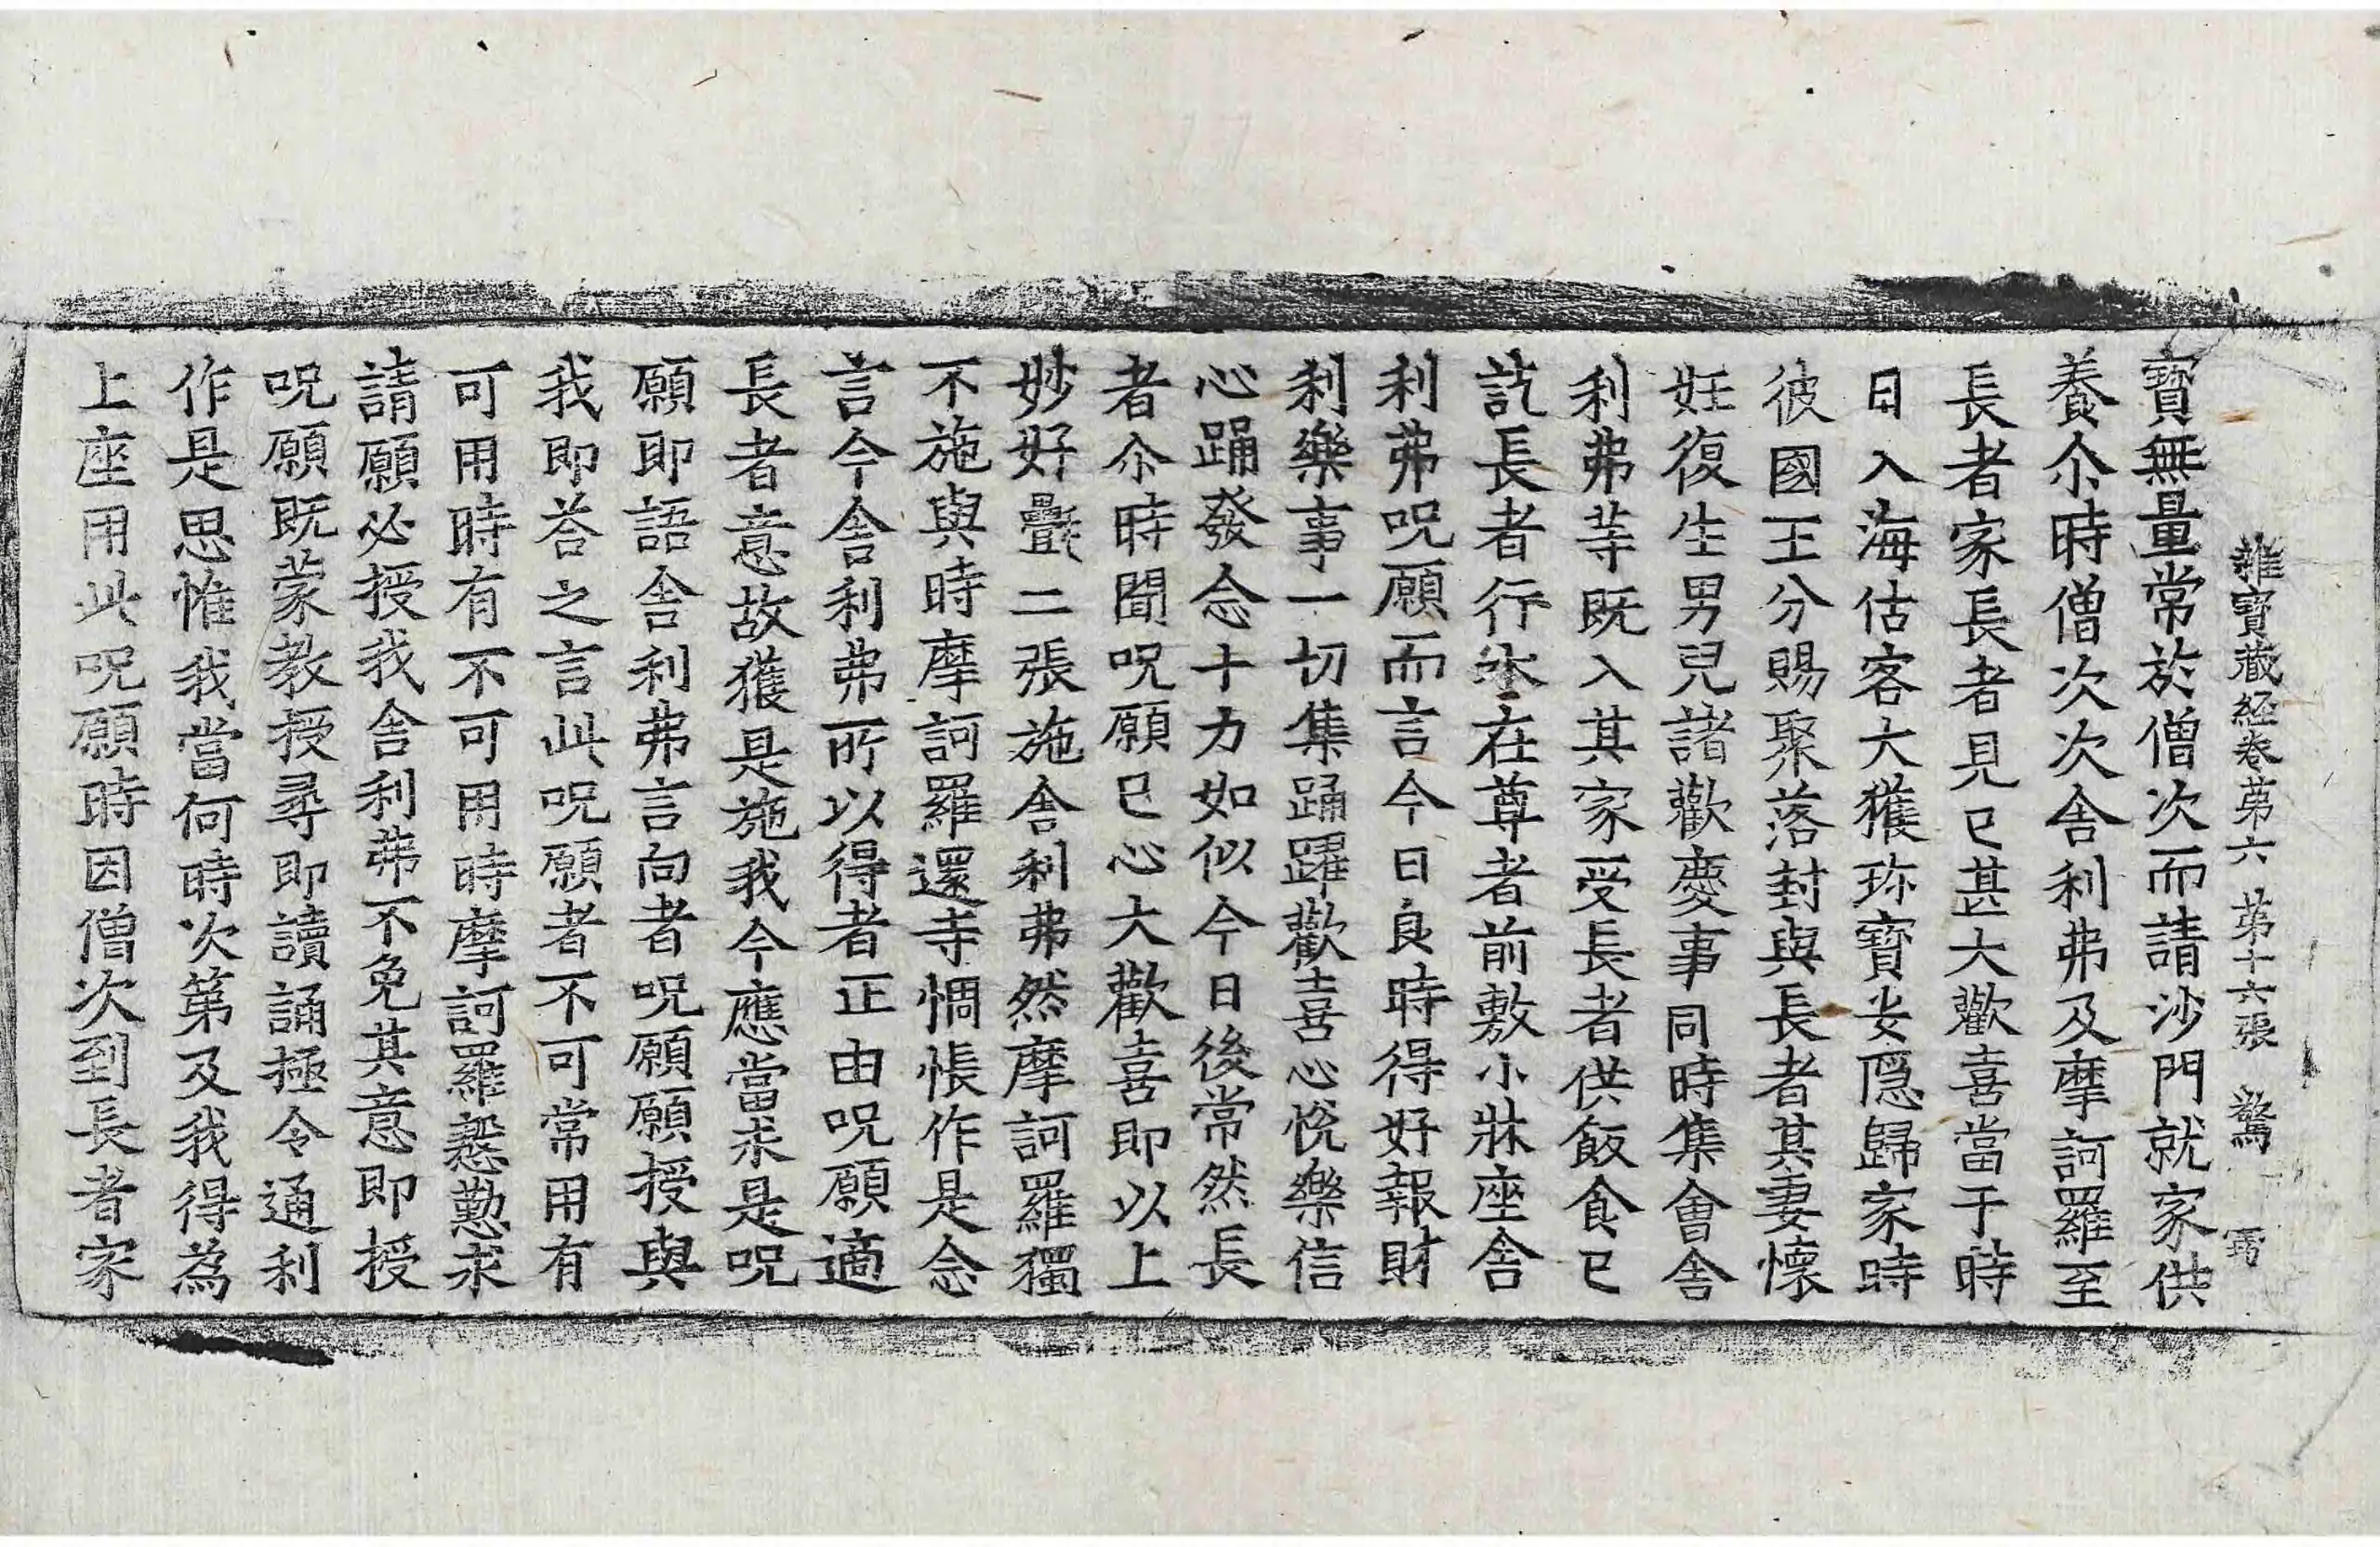 雜寶藏經卷第六 第十六張 驚
寶無量常於僧次而請沙門就家供
養尒時僧次次舍利弗及摩訶羅至
長者家長者見已甚大歡喜當于時
日入海估客大獲珎寶安隱歸家時
彼國王分賜聚落封與長者其妻懷
妊復生男兒諸歡慶事同時集會舍
利弗等既入其家受長者供飯食已
訖長者行水在尊者前敷小牀座舍
利弗呪願而言今日良時得好報財
利樂事一切集踊躍歡喜心悅樂信
心踊發念十力如似今日後常然長
者尒時聞呪願已心大歡喜即以上
妙好㲲二張施舍利弗然摩訶羅獨
不施與時摩訶羅還寺惆悵作是念
言今舍利弗所以得者正由呪願適
長者意故獲是施我今應當求是呪
願即語舍利弗言向者呪願願授與
我即荅之言此呪願者不可常用有
可用時有不可用時摩訶羅慇懃求
請願必授我舍利弗不免其意即授
呪願既蒙教授尋即讀誦極令通利
作是思惟我當何時次第及我得為
上座用此呪願時因僧次到長者家